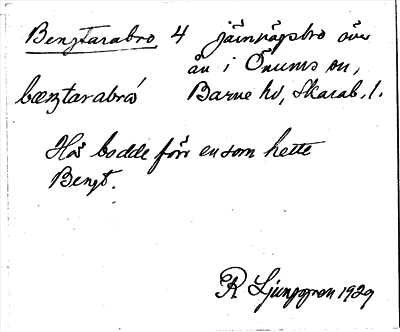 Bengtarabro 4 järnvägsbro över
ån i Önums sn,
bæŋtarabrό Barne hd, Skarab. l.
Här bodde förr en som hette
Bengt.
R Ljunggren 1929